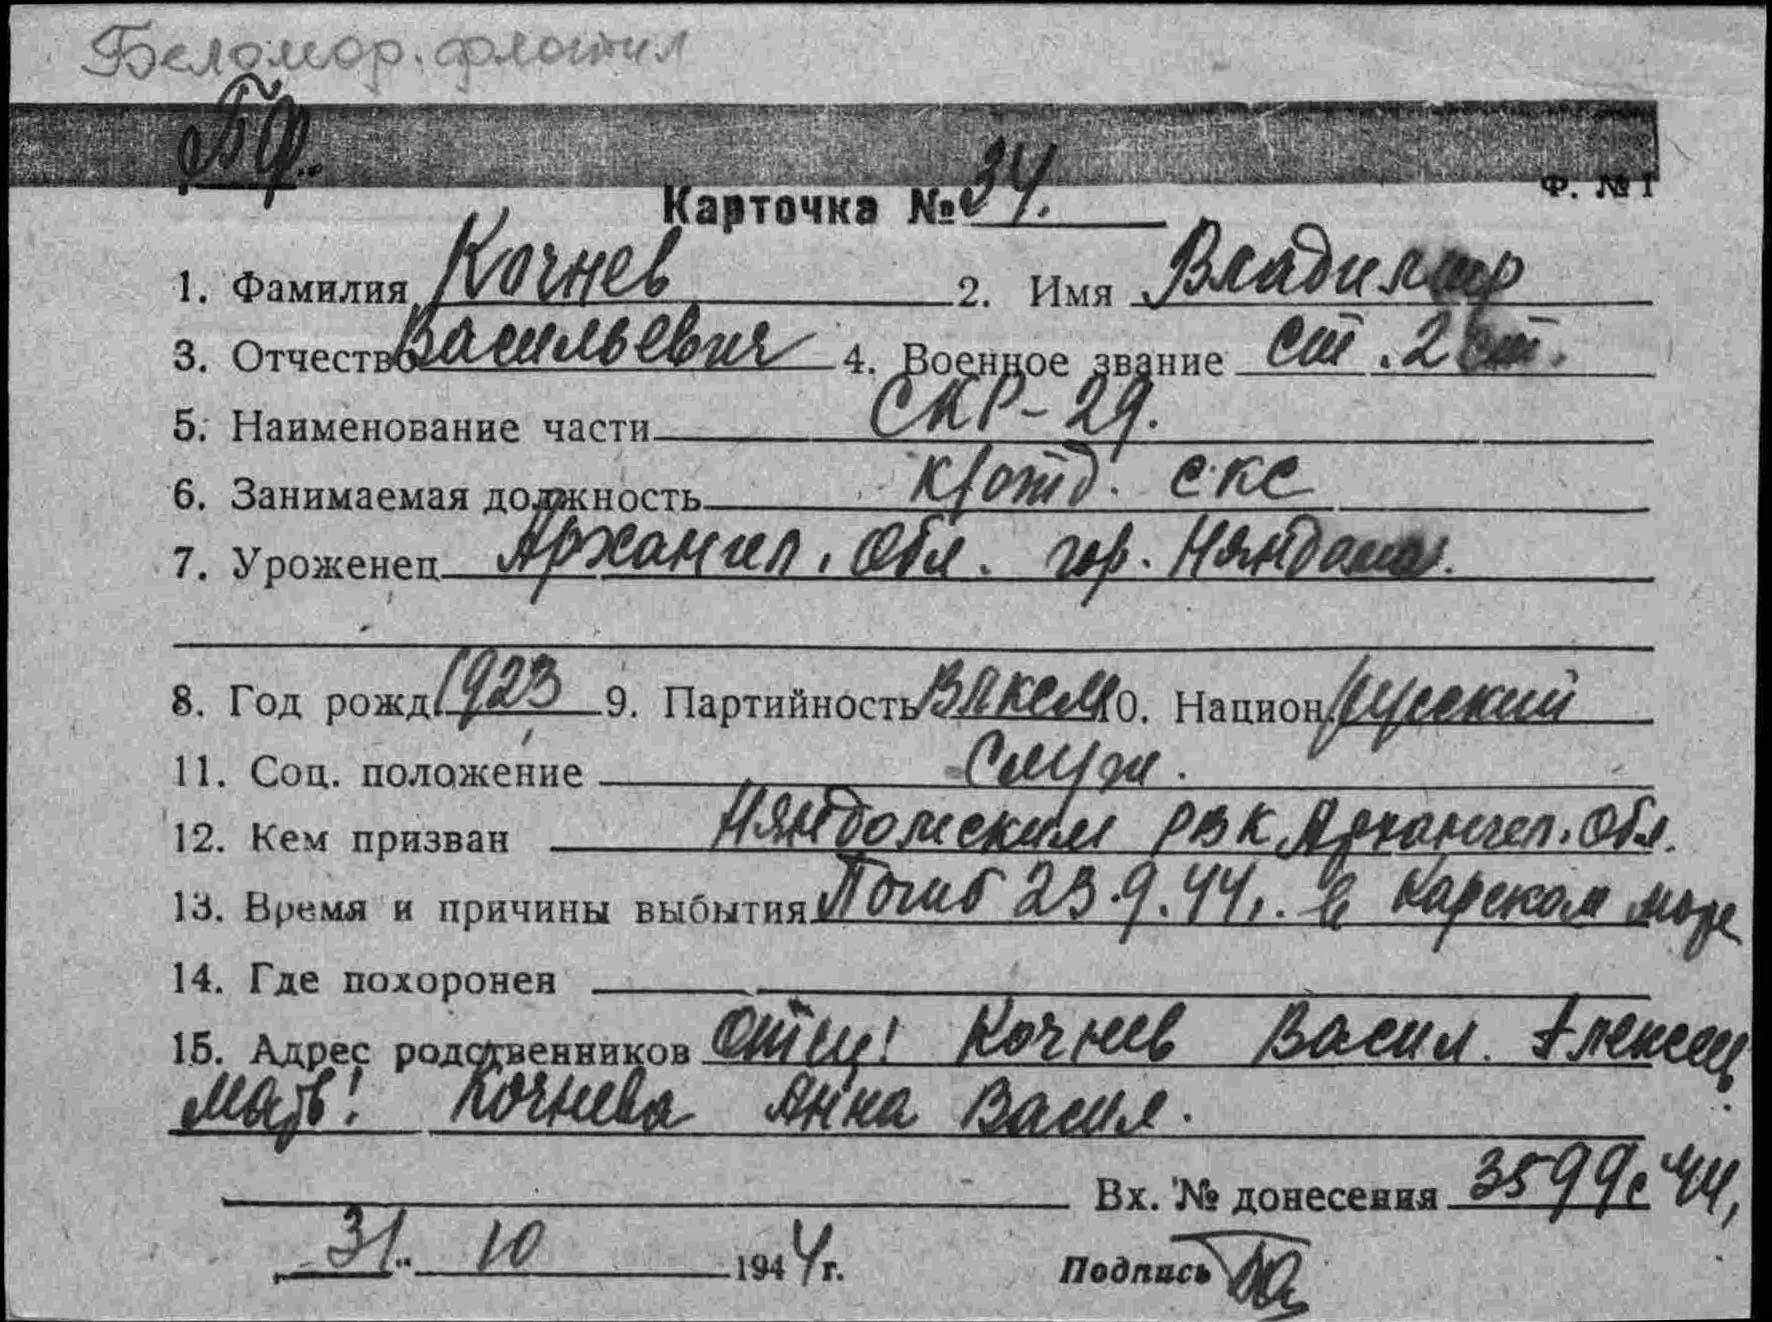 Беломор. флотил
БФ.
Ф. № 1
Карточка № 34.
1. Фамилия Кочнев 2. Имя Владимир
3. Отчество Васильевич 4. Военное звание ст. 2 ст.
5. Наименование части СКР-29.
6. Занимаемая должность к/отд. СКС
7. Уроженец Архангел. Обл. гор. Няндома.
8. Год рожд. 1923 9. Партийность ВЛКСМ 10. Национ. русский
11. Соц. положение Служ.
12. Кем призван Няндомским РВК Архангел. Обл.
13. Время и причины выбытия Погиб 23.9.44г. в Карском море
14. Где похоронен
15. Адрес родственников Отец! Кочнев Васил. Алексеев
Мать! Кочнева Анна Васил.
Вх. № донесения 3599с 44,
31. 10 1944 г. Подпись